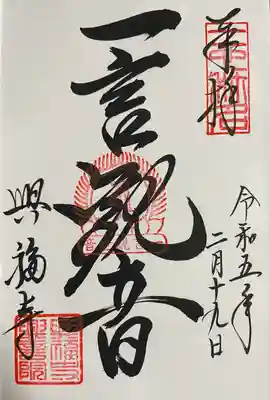 奉拝
令和五年
二月十九日
一言観音
興福寺